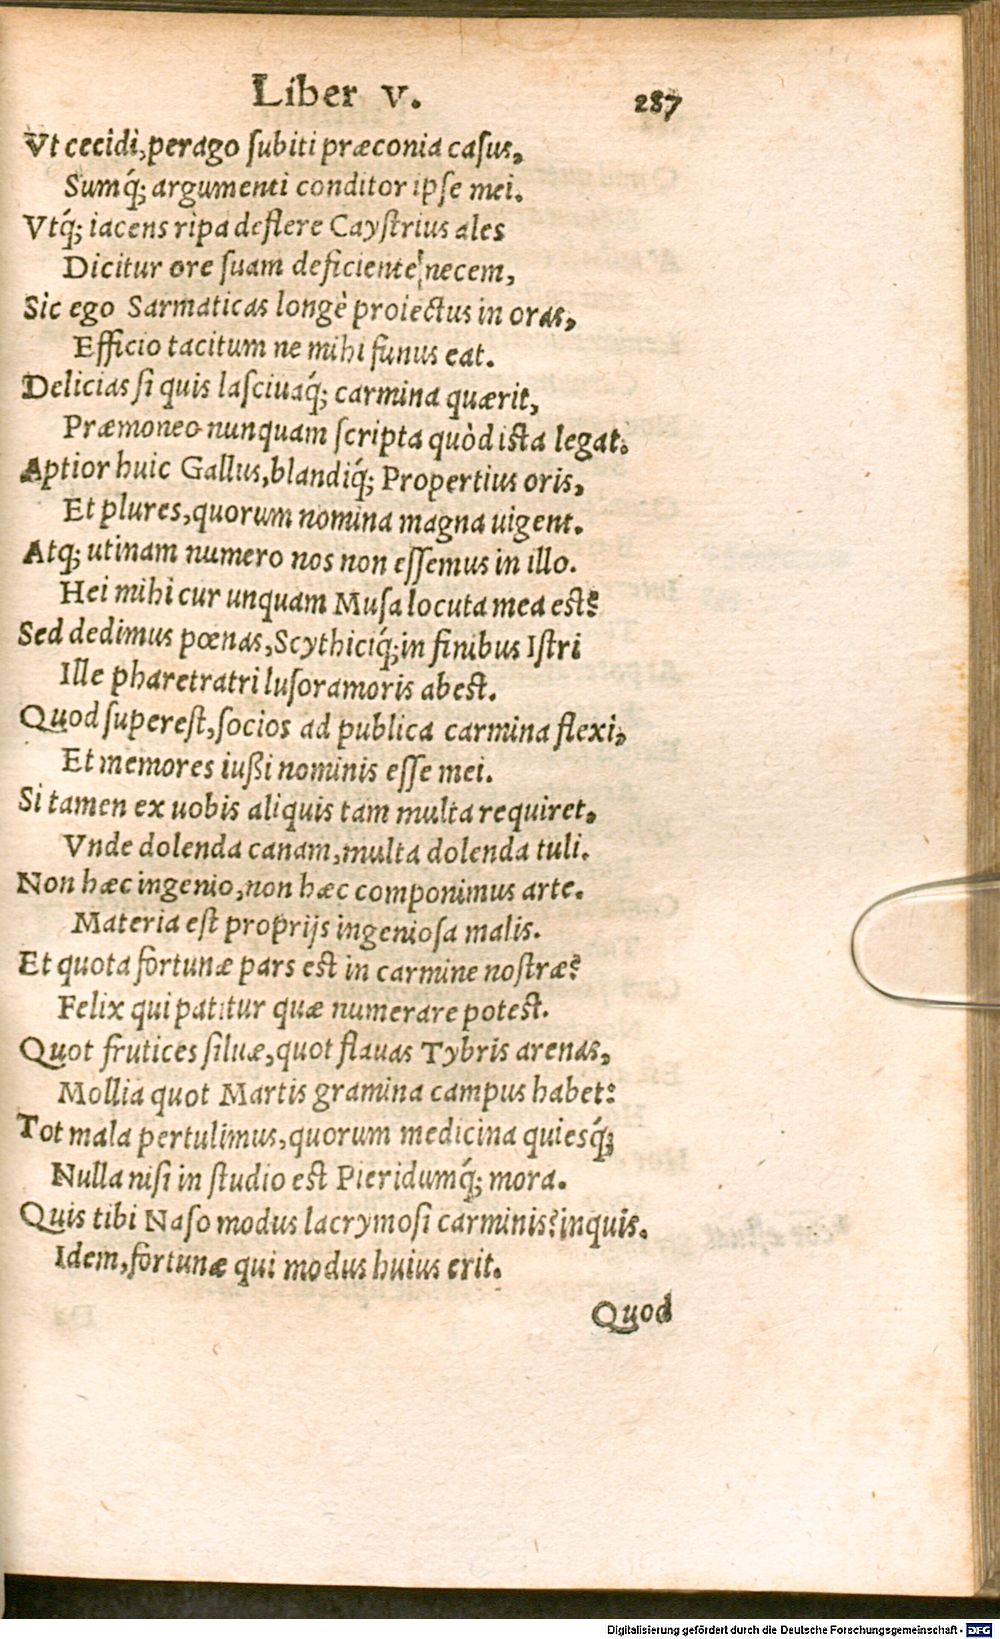 Liber v. 287
Vt cecidi, perago ſubiti præconia caſus,
Sumq́; argumenti conditor ipſe mei.
Vtq́; iacens ripa deflere Cayſtrius ales
Dicitur ore ſuam deficiente necem,
Sic ego Sarmaticas longè proiectus in oras,
Efficio tacitum ne mihi funus eat.
Delicias ſi quis laſciuaq́; carmina quærit,
Præmoneo nunquam ſcripta quòd iſta legat.
Aptior huic Gallus, blandiq́; Propertius oris,
Et plures, quorum nomina magna uigent.
Atq; utinam numero nos non eſſemus in illo.
Hei mihi cur unquam Muſa locuta mea est?
Sed dedimus pœnas, Scythiciq́; in finibus Iſtri
Ille pharetratri luſor amoris abest.
Quod ſupereſt, ſocios ad publica carmina flexi,
Et memores iußi nominis eſſe mei.
Si tamen ex uobis aliquis tam multa requiret,
Vnde dolenda canam, multa dolenda tuli.
Non hæc ingenio, non hæc componimus arte.
Materia eſt proprijs ingenioſa malis.
Et quota fortunæ pars est in carmine noſtræ?
Felix qui patitur quæ numerare potest.
Quot frutices ſiluæ, quot flauas Tybris arenas,
Mollia quot Martis gramina campus habet:
Tot mala pertulimus, quorum medicina quiesq́;
Nulla niſi in ſtudio est Pieridumq́; mora.
Quis tibi Naſo modus lacrymoſi carminis? inquis.
Idem, fortunæ qui modus huius erit.
Quod
Digitalisierung gefördert durch die Deutsche Forschungsgemeinschaft - DFG